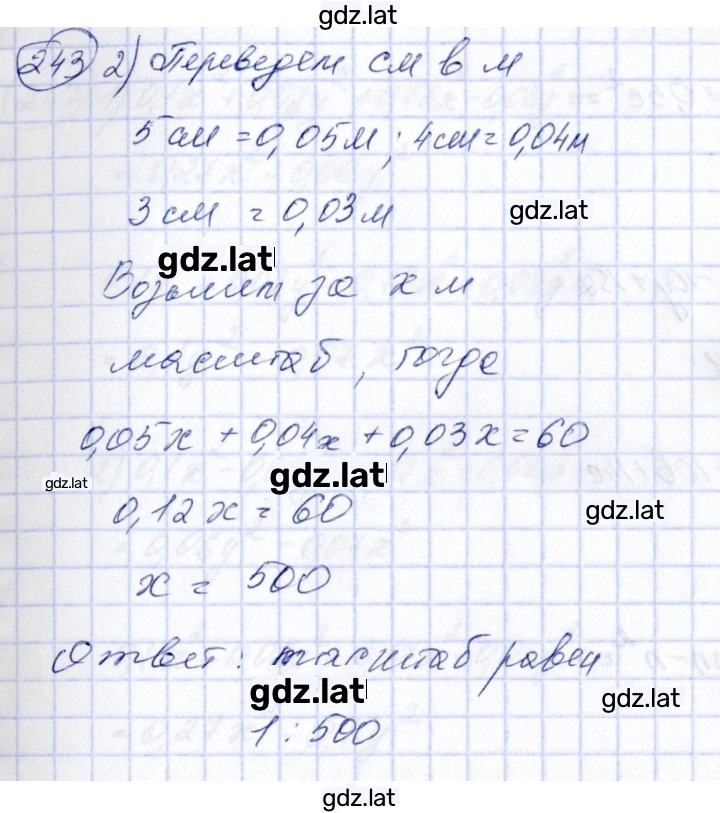 gdz.lat
243 2) Переведем см в м
5 см = 0,05м; 4см = 0,04м
3 см = 0,03м
gdz.lat
gdz.lat
Возьмем за x м
масштаб, тогда
0,05x + 0,04x + 0,03x = 60
gdz.lat
gdz.lat
0,12x = 60
gdz.lat
x = 500
Ответ: масштаб равен
gdz.lat
gdz.lat
1 : 500
gdz.lat